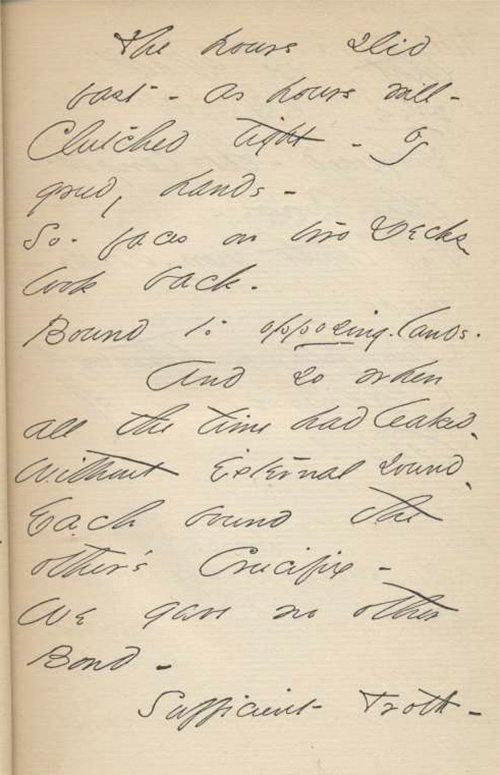 The hours slid
fast - as hours will -
Clutched tight - by
greedy hands -
So - faces on two Decks
look back -
Bound to opposing lands.
And so when
all the time had leaked,
Without external sound,
Each bound the
other's Crucifix -
We gave no other
Bond -
Sufficient troth -